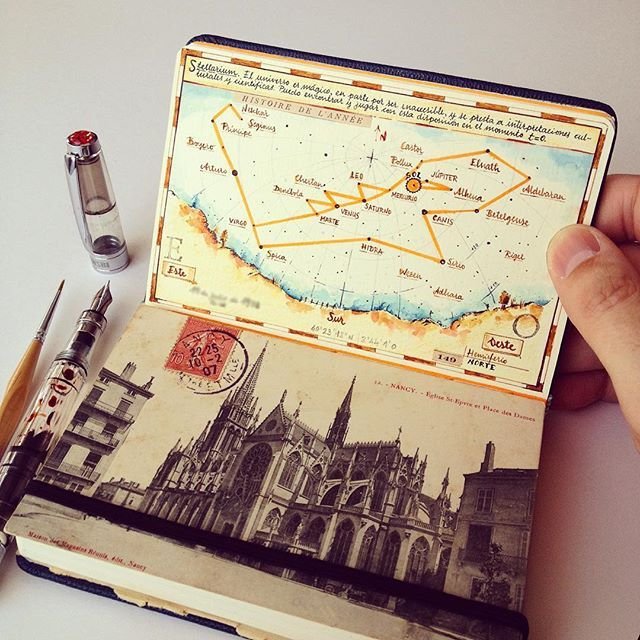 Stellarium. El universo es mágico, en parte por ser inaccesible, y se presta a interpretaciones cul-
turales y científicas. Puedo encontrar y jugar con esta disposición en el momento t=0.
HISTOIRE DE L'ANNÉE
N
Nekkar
Seginus
Príncipe
Boyero
Arturo
Castor
Pollux
Elnath
LEO
SOL
JÚPITER
Chertan
Denébola
MERCURIO
Alhena
Aldebaran
VENUS
SATURNO
MARTE
CANIS
Betelgeuse
VIRGO
Spica
HIDRA
Sirio
Rigel
Wezen
Adhara
E
Este
Sur
Oeste
40°23'12"N | 2°44'1"O
149
Hemisferio
NORTE
NANCY. - Eglise St-Epvre et Place des Dames
10
22-25
07
Maison des Magasins Réunis, édit. Nancy